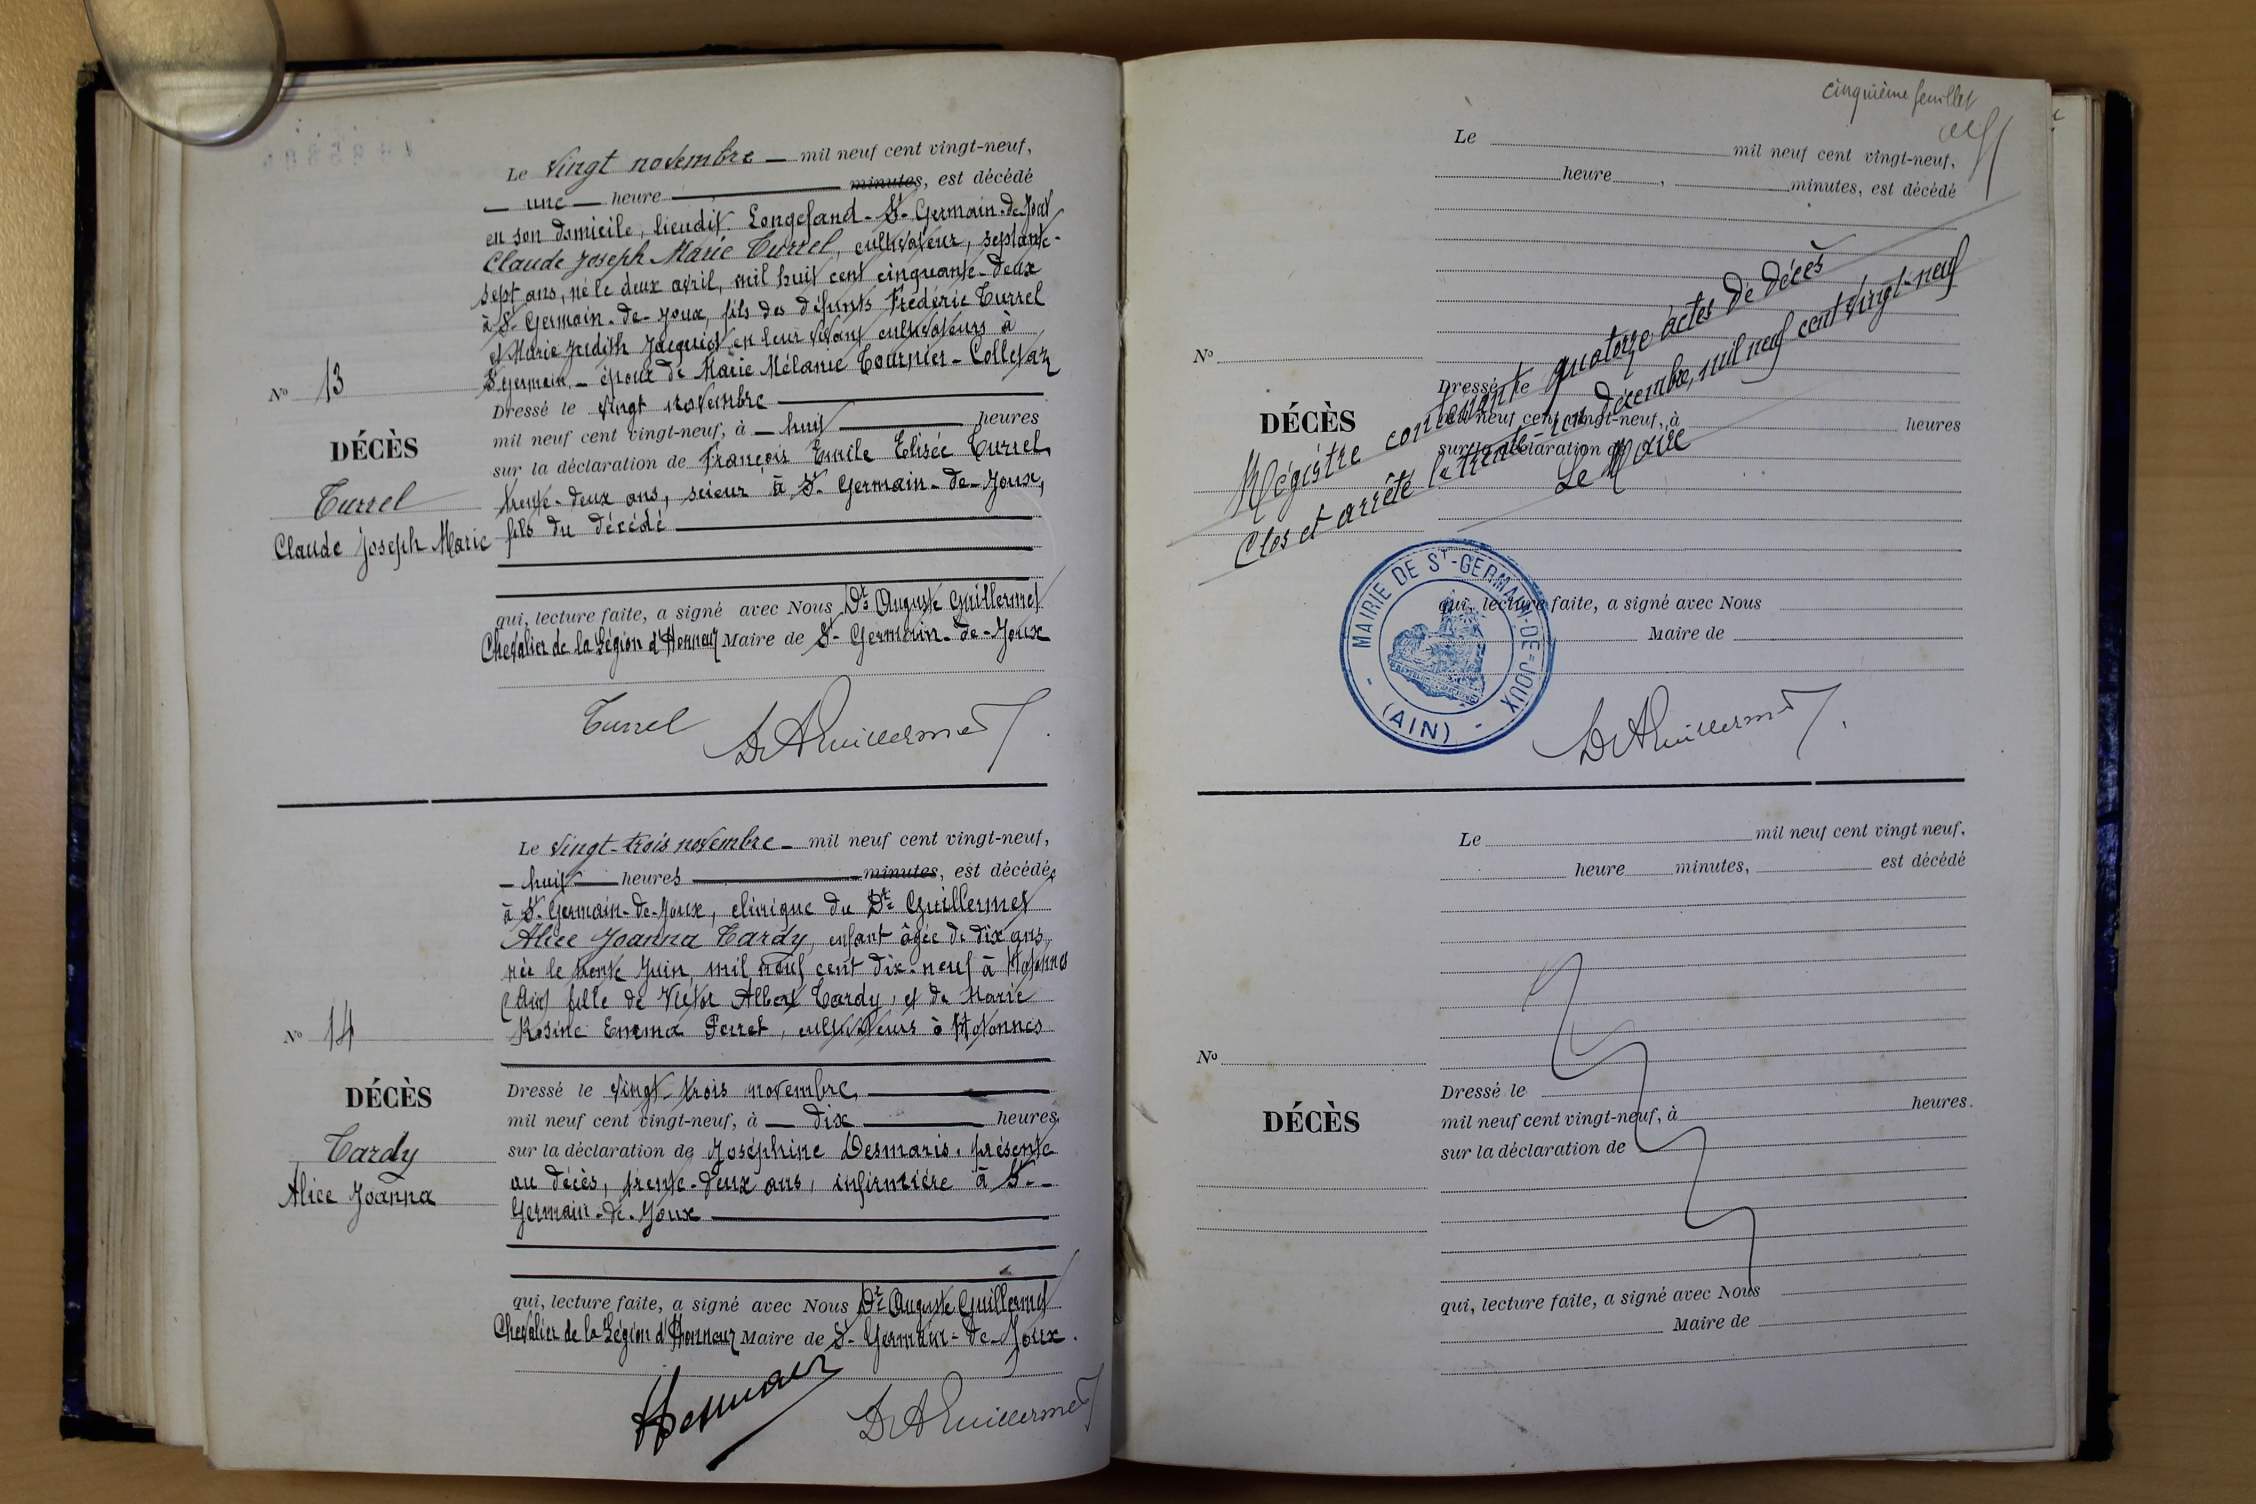 Le vingt novembre — mil neuf cent vingt-neuf,
— une — heure — minutes, est décédé
en son domicile, lieudit Longefand - St Germain-de-Joux
Claude Joseph Marie Turrel, cultivateur, septante-
sept ans, né le deux avril, mil huit cent cinquante-deux
à St Germain-de-Joux, fils des défunts Frédéric Turrel
et Marie Judith Jacquiot en leur vivant cultivateurs à
St Germain, - époux de Marie Mélanie Tournier-Colletaz
No 13
Dressé le vingt novembre
mil neuf cent vingt-neuf, à — huit — heures
DÉCÈS
sur la déclaration de François Emile Elisée Turrel,
Turrel
trente-deux ans, scieur à St Germain-de-Joux,
Claude Joseph Marie
fils du décédé
qui, lecture faite, a signé avec Nous Dr Auguste Guillermet
Chevalier de la Légion d'Honneur Maire de St Germain-de-Joux
Turrel Dr A Guillermet
Le vingt-trois novembre — mil neuf cent vingt-neuf,
— huit — heures — minutes, est décédée
à St Germain-de-Joux, clinique du Dr Guillermet
Alice Joanna Tardy, enfant âgée de dix ans,
née le trente Juin, mil neuf cent dix-neuf à Hotonnes
(Ain) fille de Victor Albert Tardy, et de Marie
Rosine Emma Perret, cultivateurs à Hotonnes
No 14
DÉCÈS
Dressé le vingt-trois novembre
mil neuf cent vingt-neuf, à — dix — heures,
Tardy
sur la déclaration de Joséphine Desmaris, présente
Alice Joanna
au décès, trente-deux ans, infirmière à St-
Germain-de-Joux
qui, lecture faite, a signé avec Nous Dr Auguste Guillermet
Chevalier de la Légion d'Honneur Maire de St-Germain-de-Joux.
Dr A Guillermet
cinquième feuillet
Le mil neuf cent vingt-neuf,
heure , minutes, est décédé
No
Dressé le
DÉCÈS
mil neuf cent vingt-neuf, à heures
sur la déclaration de
Régistre contenant quatorze actes de décès
Clos et arrêté le trente-un décembre, mil neuf cent vingt-neuf
Le Maire
MAIRIE DE ST-GERMAIN-DE=JOUX
- (AIN) -
qui, lecture faite, a signé avec Nous
Maire de
Dr A Guillermet
Le mil neuf cent vingt neuf,
heure minutes, est décédé
No
Dressé le
DÉCÈS
mil neuf cent vingt-neuf, à heures.
sur la déclaration de
qui, lecture faite, a signé avec Nous
Maire de